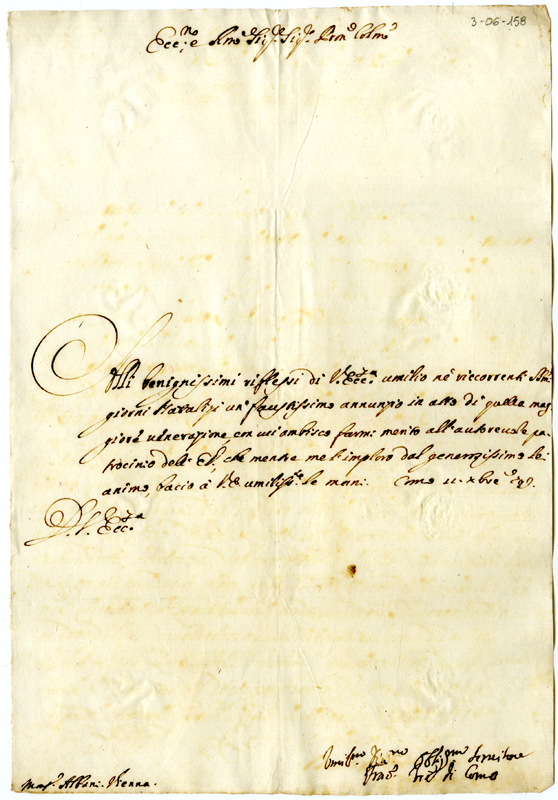 3-06-158
Ecc.mo e Rmo Sig.r Sig.r Pron Colmo
Alli benignissimi riflessi di V. Ecc.za umilio nè riccorrenti Smi
giorni Natalizi un faustissimo annunzio in atto di quella mag
giore venerazione, con cui ambisco farmi merito all'autorevole pa
trocinio dell' E.V. che mentre me l'imploro dal generosissimo di lei
animo, bacio à V.E. umiliss.te le mani. Como 11. xbre
D. V. Ecc.za
Umiliss.mo Obblig.mo Servitore
di Como
Mons.r Albani. Vienna.